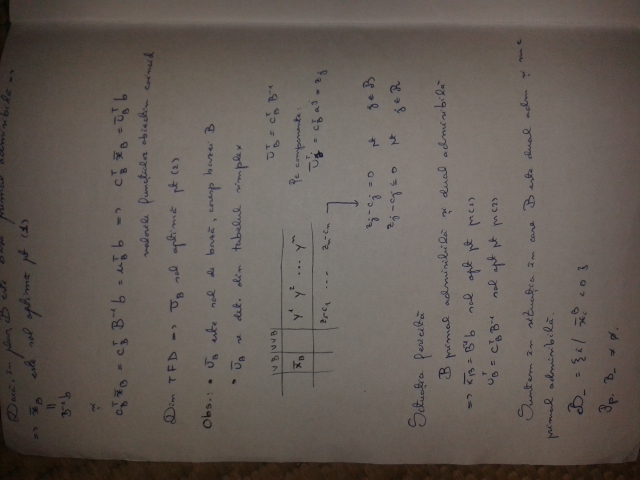 Dacă, în plus, B este bază primal admisibilă =>
=> x̄_B este sol optimă pt (1)
||
B⁻¹b
și
c_B^T x̄_B = c_B^T B⁻¹ b = u_B^T b => c_B^T x̄_B = ū_B^T b
valorile funcțiilor obiectiv coincid
Din TFD => ū_B sol optimă pt (2)
Obs.: • ū_B este sol de bază, coresp bazei B
• ū_B se det. din tabelul simplex
VB VVB
x̄_B y¹ y² ... yⁿ
z₁-c₁ ... zₙ-cₙ
ū_B^T = c_B^T B⁻¹
Pe componente:
= c_B^T = z_j
z_j-c_j = 0 pt j ∈ B
z_j-c_j ≤ 0 pt j ∈ R
Situația fericită
B primal admisibilă și dual admisibilă
=> x̄_B = B⁻¹b sol opt pt pr(1)
u_B^T = c_B^T B⁻¹ sol opt pt pr(2)
Suntem în situația în care B este dual adm și nu e
primal admisibilă.
B_ = {i / x̄_i^B < 0}
Pp. B_ ≠ ∅.